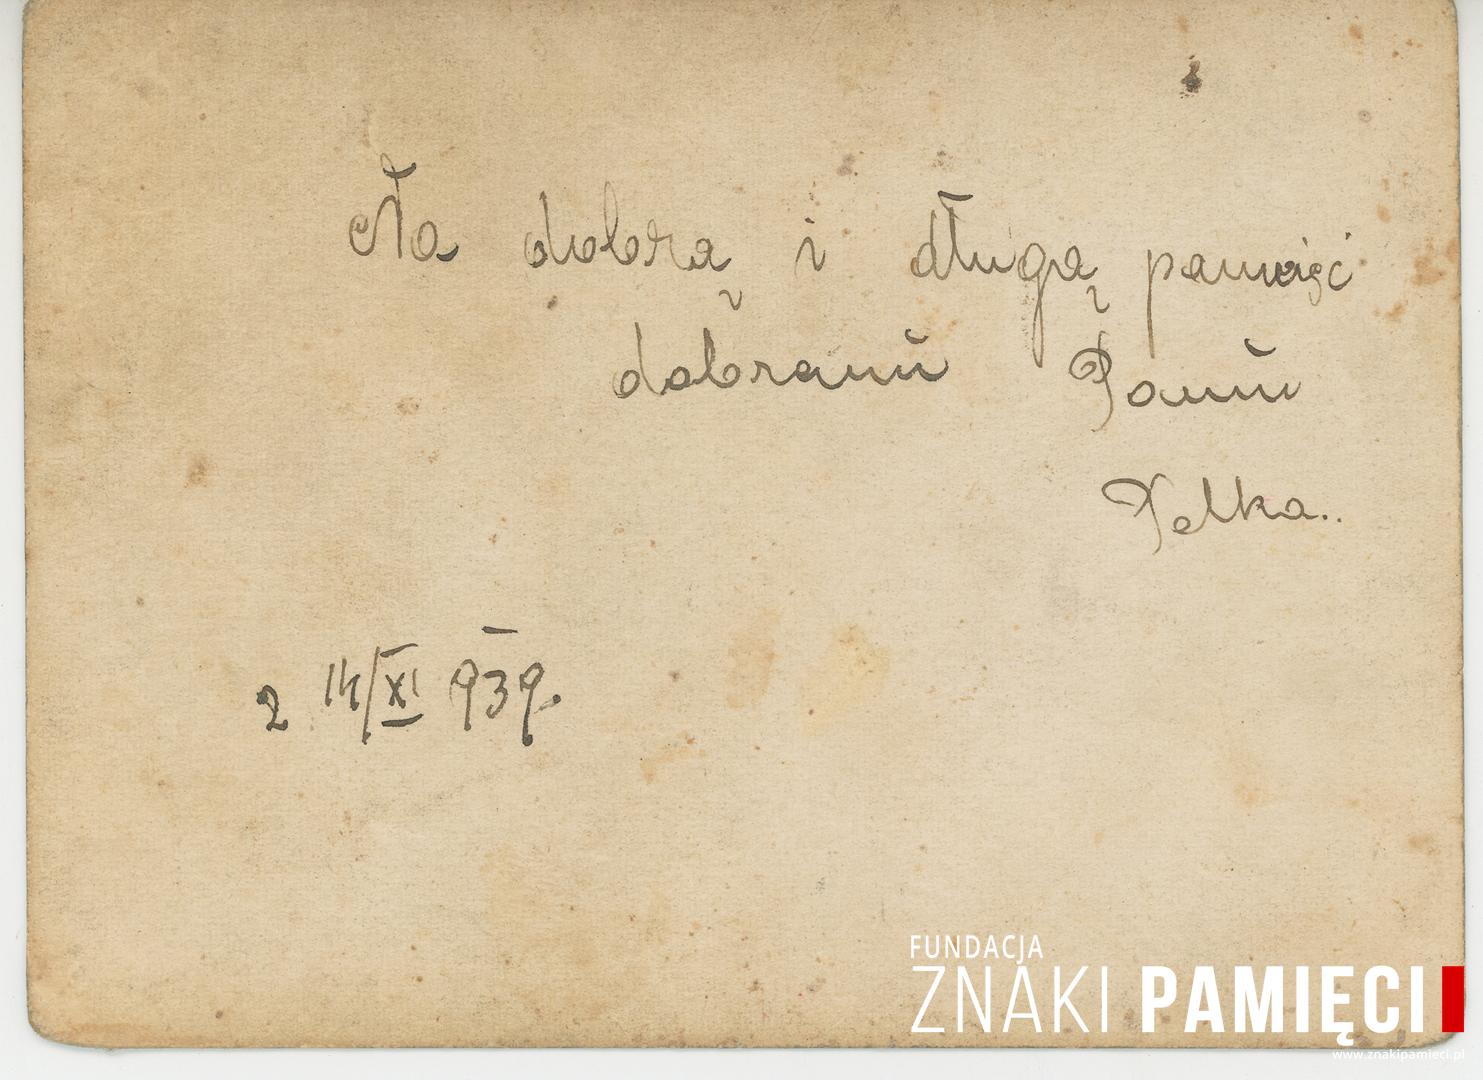 Na dobrą i długą pamięć
dobranu Panu
Felka..
2 14/XI 939.
FUNDACJA
ZNAKI PAMIĘCI
www.znakipamieci.pl